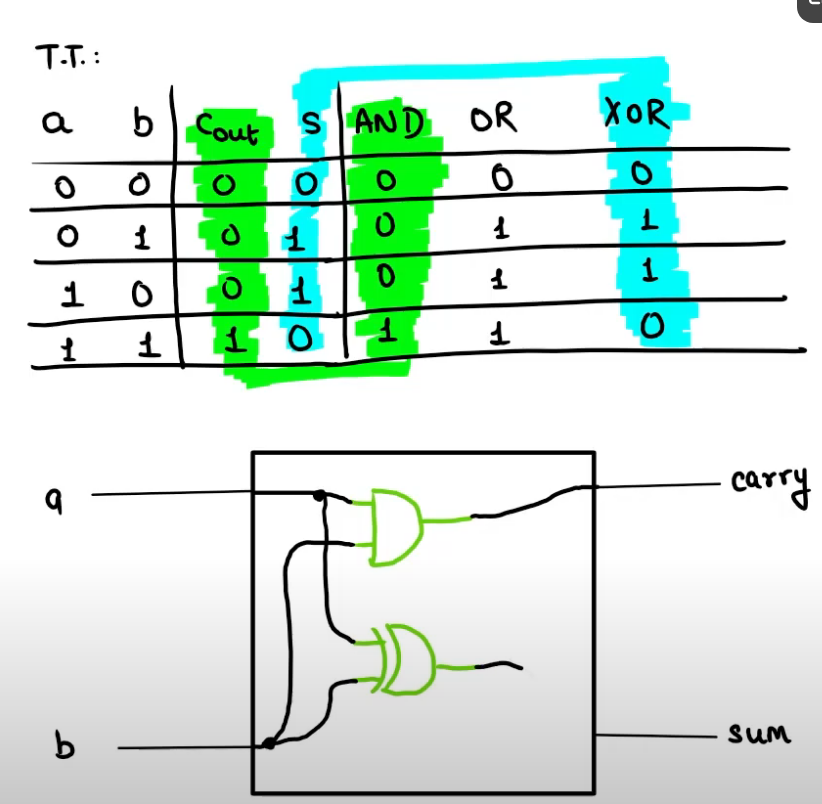 T.T.:
a b Cout S AND OR XOR
0 0 0 0 0 0 0
0 1 0 1 0 1 1
1 0 0 1 0 1 1
1 1 1 0 1 1 0
a carry
b sum